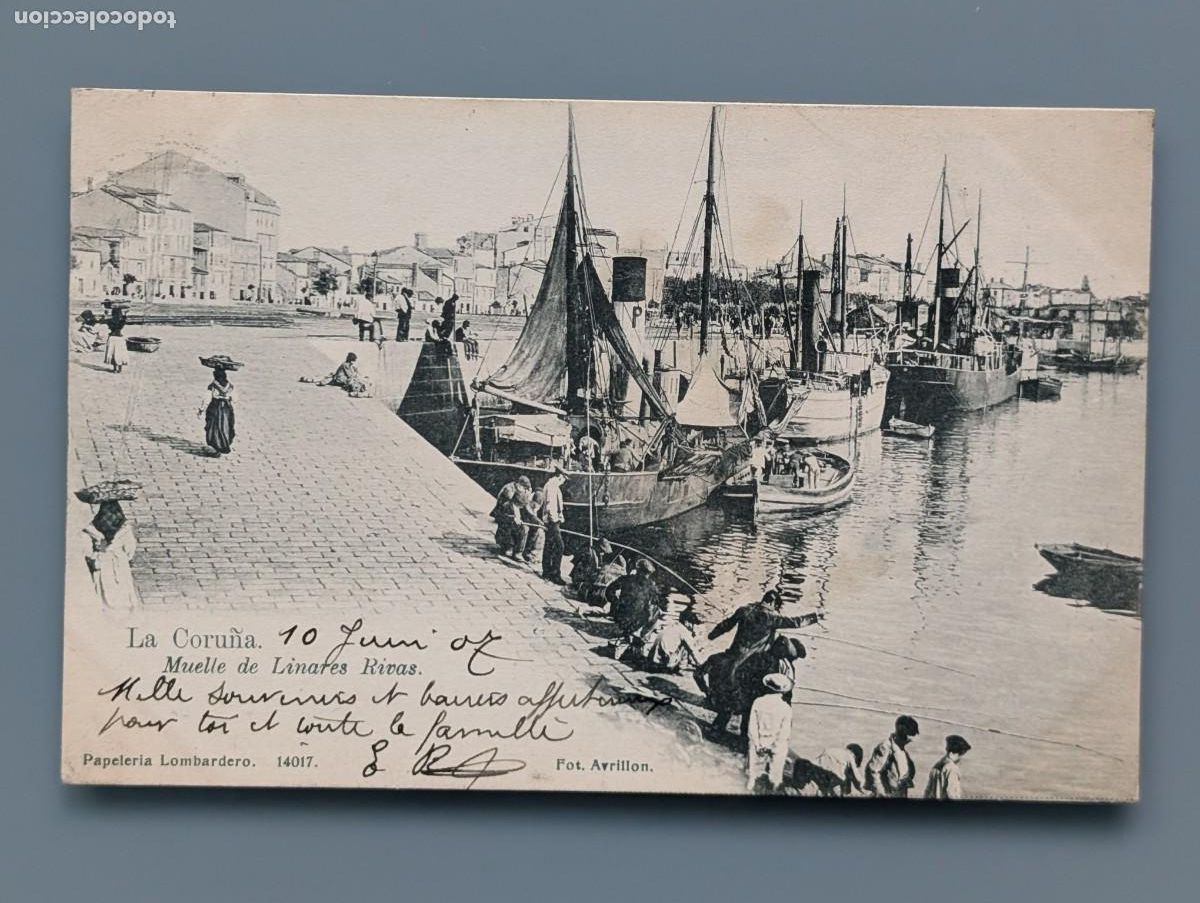 todocoleccion
P
La Coruña. 10 Juin 07
Muelle de Linares Rivas.
Mille souvenirs et baisers affectueux
pour toi et toute la famille
E R
Papeleria Lombardero. 14017.
Fot. Avrillon.